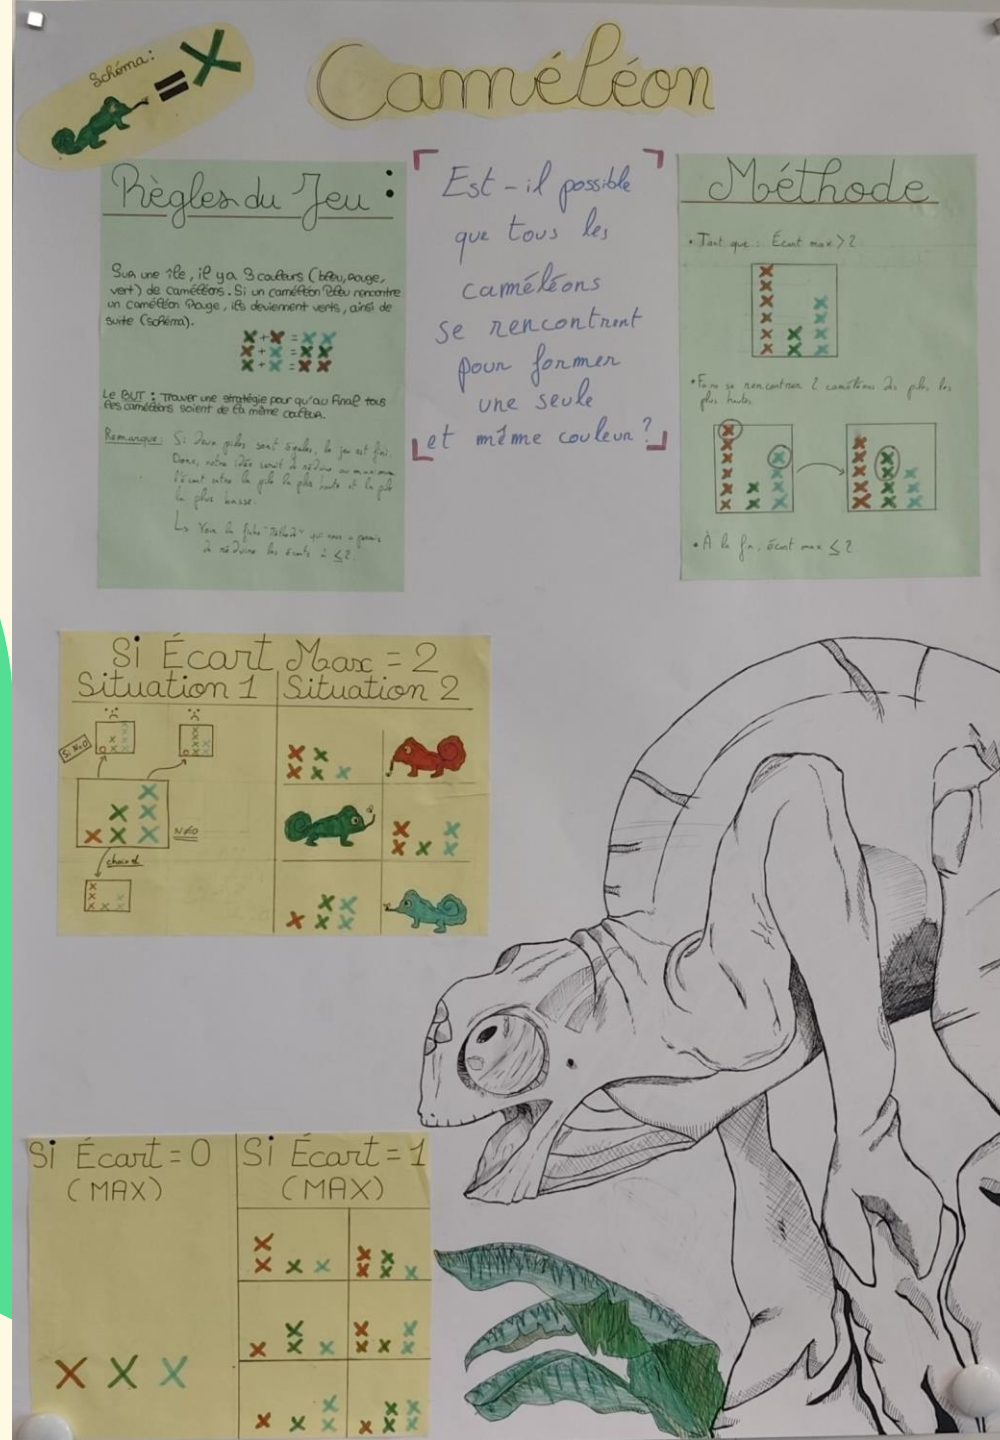 Schéma:
=
Caméléon
Règles du Jeu :
Sur une île, il y a 3 couleurs (bleu, rouge,
vert) de caméléons. Si un caméléon Bleu rencontre
un caméléon Rouge, ils deviennent verts, ainsi de
suite (schéma).
x + x = x x
x + x = x x
x + x = x x
Le BUT : Trouver une stratégie pour qu'au final tous
les caméléons soient de la même couleur.
Remarque : Si deux piles sont égales, le jeu est fini.
Donc, notre idée serait de réduire au maximum
l'écart entre la pile la plus haute et la pile
la plus basse.
↳ Voir la fiche "Méthode" qui nous a permis
de réduire les écarts à ≤ 2.
Est-il possible
que tous les
caméléons
se rencontrent
pour former
une seule
et même couleur ?
Méthode
• Tant que : Écart max > 2
• Faire se rencontrer 2 caméléons des piles les
plus hautes
• À la fin, écart max ≤ 2
Si Écart Max = 2
Situation 1 Situation 2
Si N=0
N≠0
Si Écart = 0
(MAX)
Si Écart = 1
(MAX)